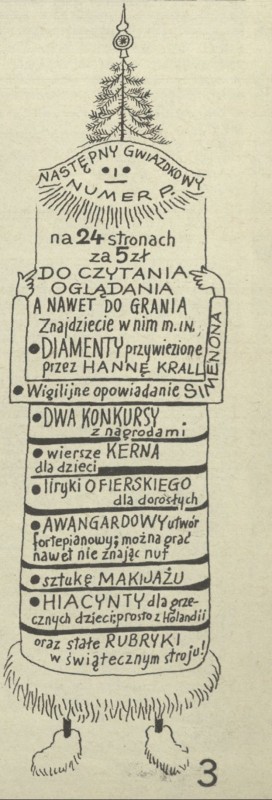 NASTĘPNY GWIAZDKOWY
NUMER P.
na 24 stronach
za 5 zł
DO CZYTANIA
OGLĄDANIA
A NAWET DO GRANIA
Znajdziecie w nim m.in.
• DIAMENTY przywiezione
przez HANNĘ KRALL
• Wigilijne opowiadanie SIMENONA
• DWA KONKURSY
z nagrodami
• wiersze KERNA
dla dzieci
• liryki OFIERSKIEGO
dla dorosłych
• AWANGARDOWY utwór
fortepianowy; można grać
nawet nie znając nut
• sztukę MAKIJAŻU
• HIACYNTY dla grze-
cznych dzieci; prosto z Holandii
oraz stałe RUBRYKI
w świątecznym stroju!
3